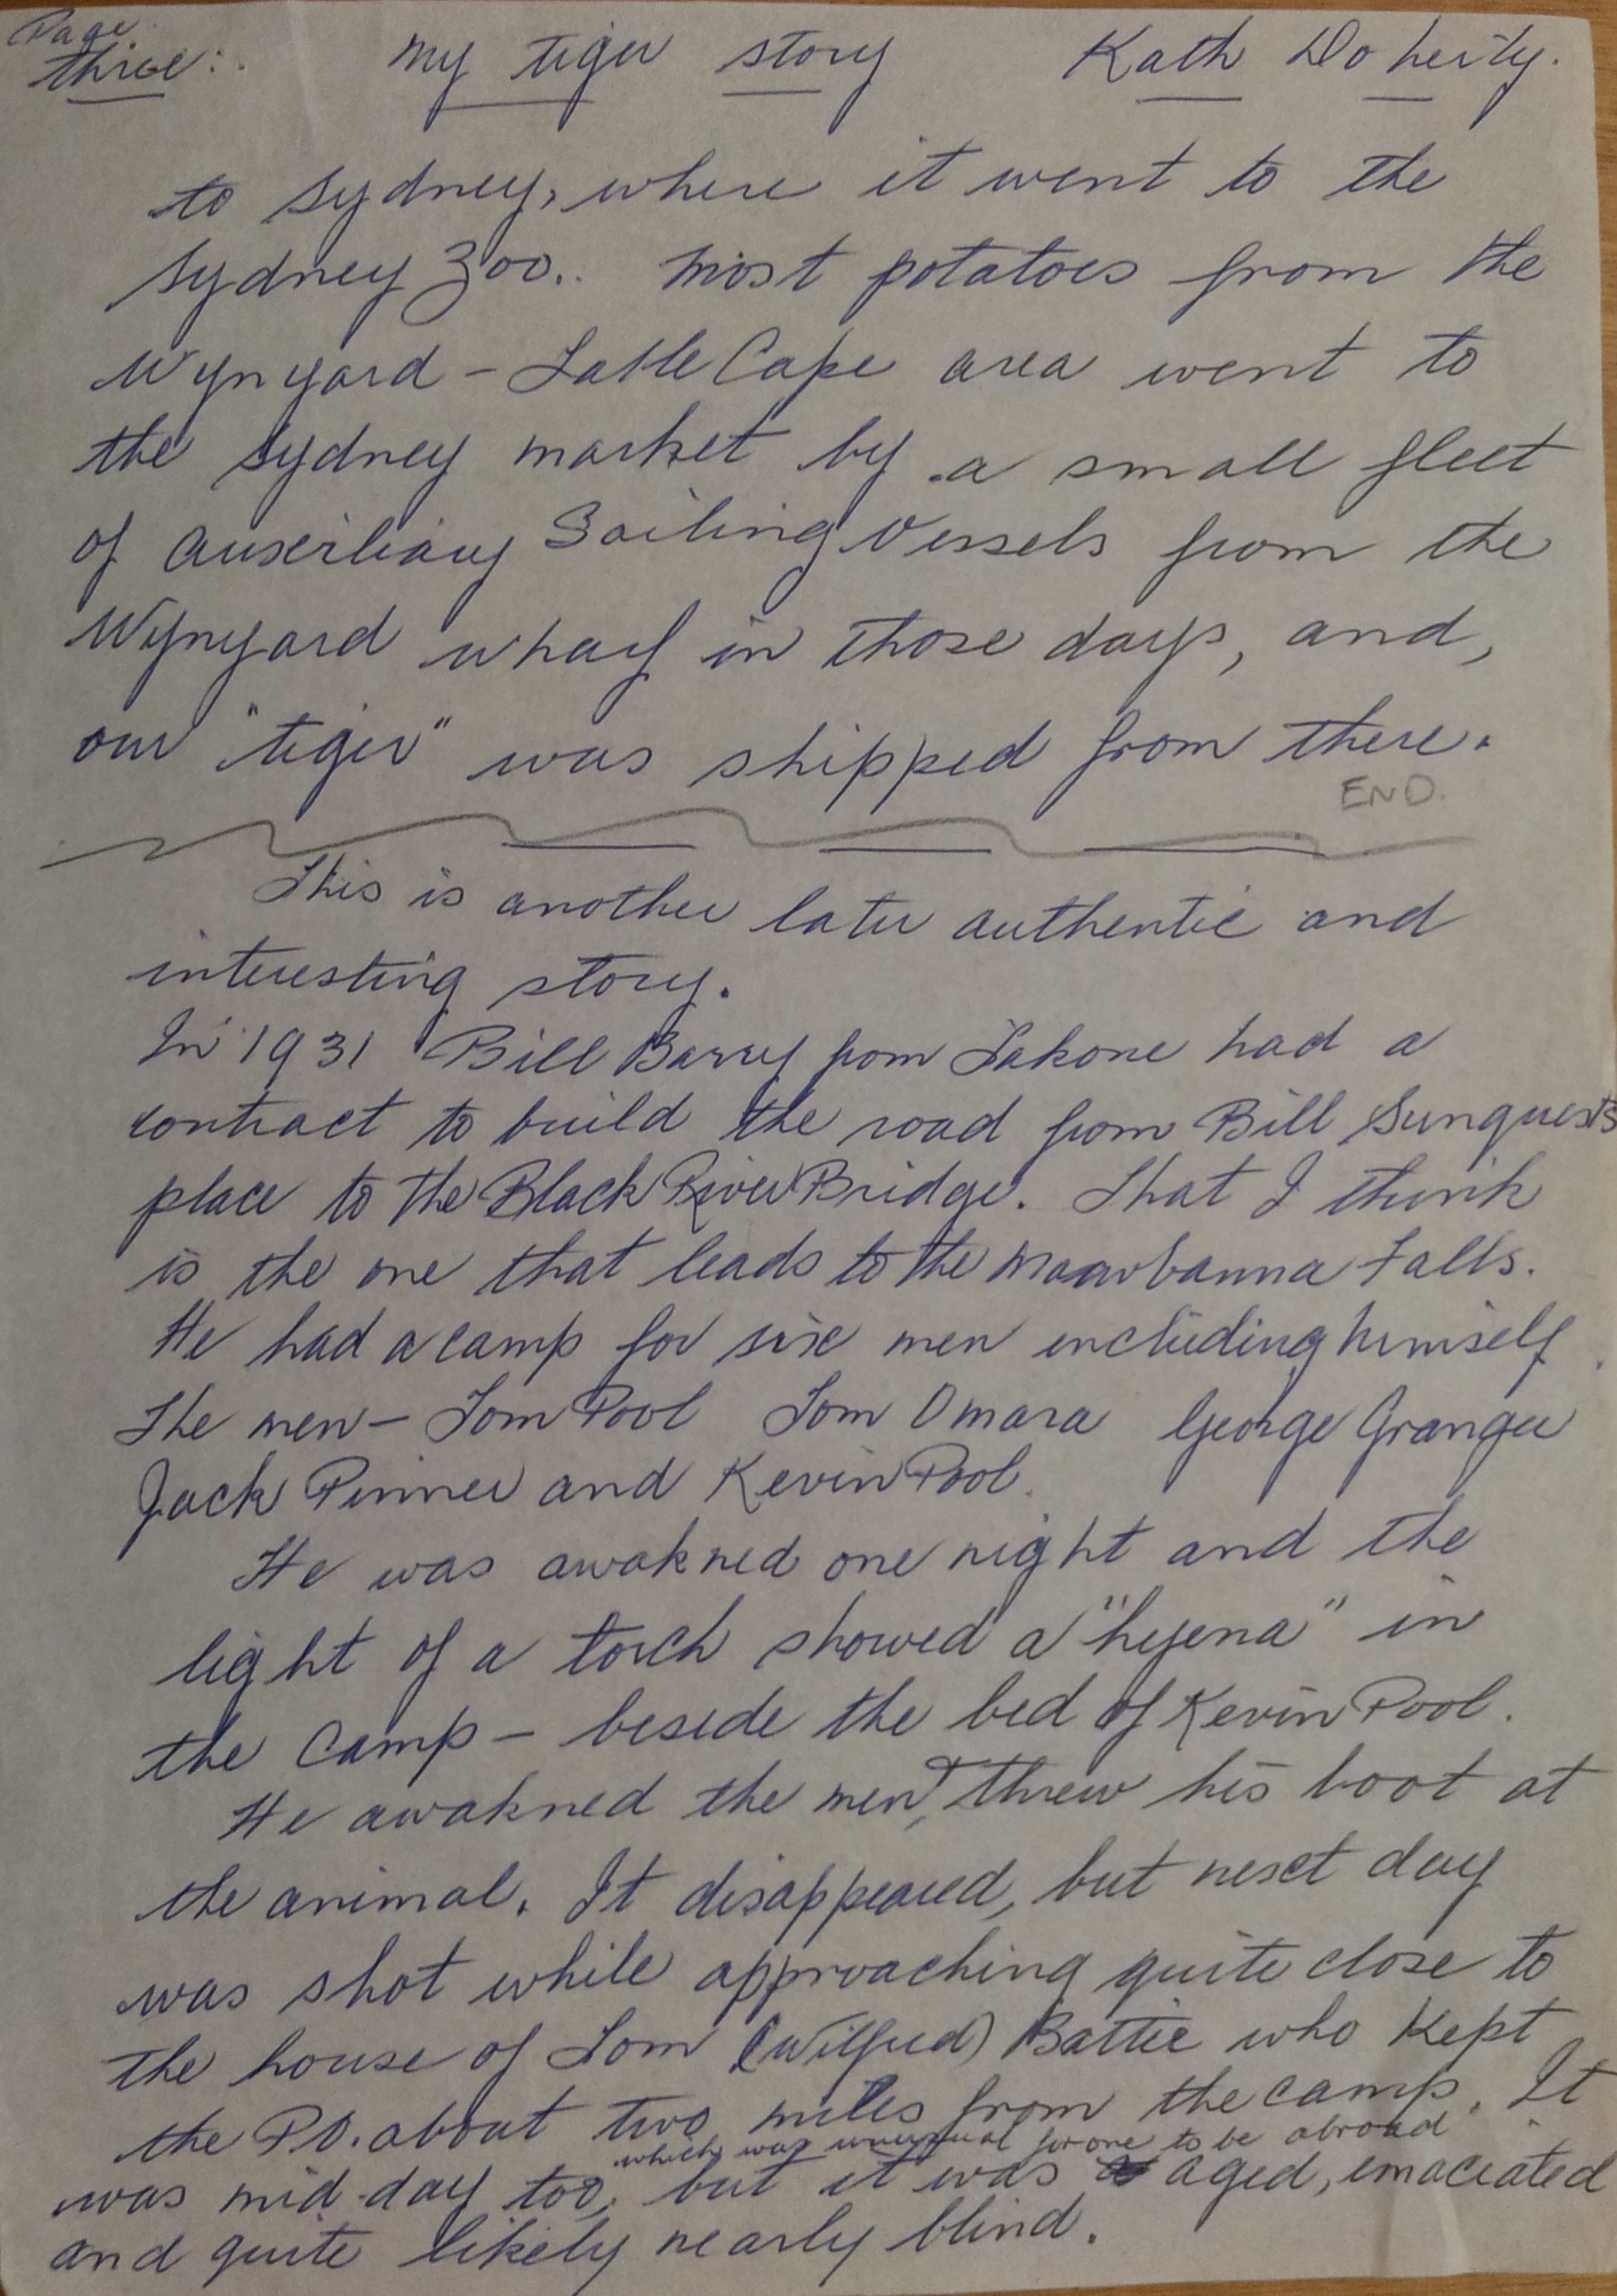 Page
three:. My tiger story Kath Doherty.
to Sydney, where it went to the
Sydney Zoo.. Most potatoes from the
Wynyard - Table Cape area went to
the Sydney market by a small fleet
of auxiliary Sailing Vessels from the
Wynyard wharf in those days, and,
our "tiger" was shipped from there.
END.
This is another later authentic and
interesting story.
In 1931 Bill Barry from Takone had a
contract to build the road from Bill Sunquists
place to the Black River Bridge. That I think
is the one that leads to the Mawbanna Falls.
He had a camp for six men including himself.
The men - Tom Pool Tom Omara George Granger
Jack Pinner and Kevin Pool.
He was awakned one night and the
light of a torch showed a "hyena" in
the Camp - beside the bed of Kevin Pool.
He awakned the men, & threw his boot at
the animal. It disappeared, but next day
was shot while approaching quite close to
the house of Tom (Wilfred) Battie who kept
the P.O. about two miles from the camp. It
which was unusual for one to be abroad
was mid-day too, but it was aged, emaciated
and quite likely nearly blind.